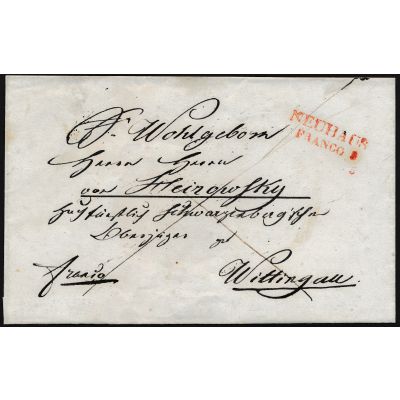 Sr Wohlgeborn
NEUHAUS
FRANCO
Herrn Herrn
von Heirowsky
Hochfürstlich Schwarzenbergischer
Oberjäger zu
franco
Wittingau